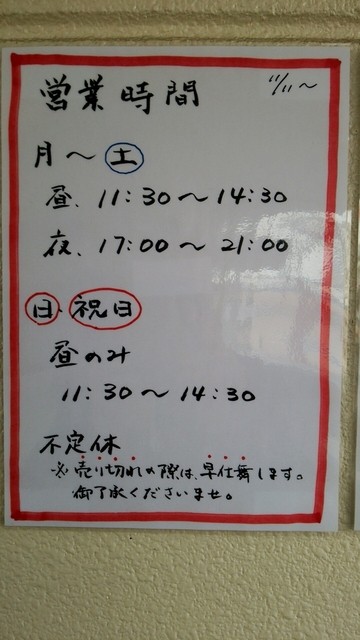 営業時間 11/11〜
月〜土
昼、11:30〜14:30
夜、17:00〜21:00
日・祝日
昼のみ
11:30〜14:30
不定休
※売り切れの際は、早仕舞します。
御了承くださいませ。